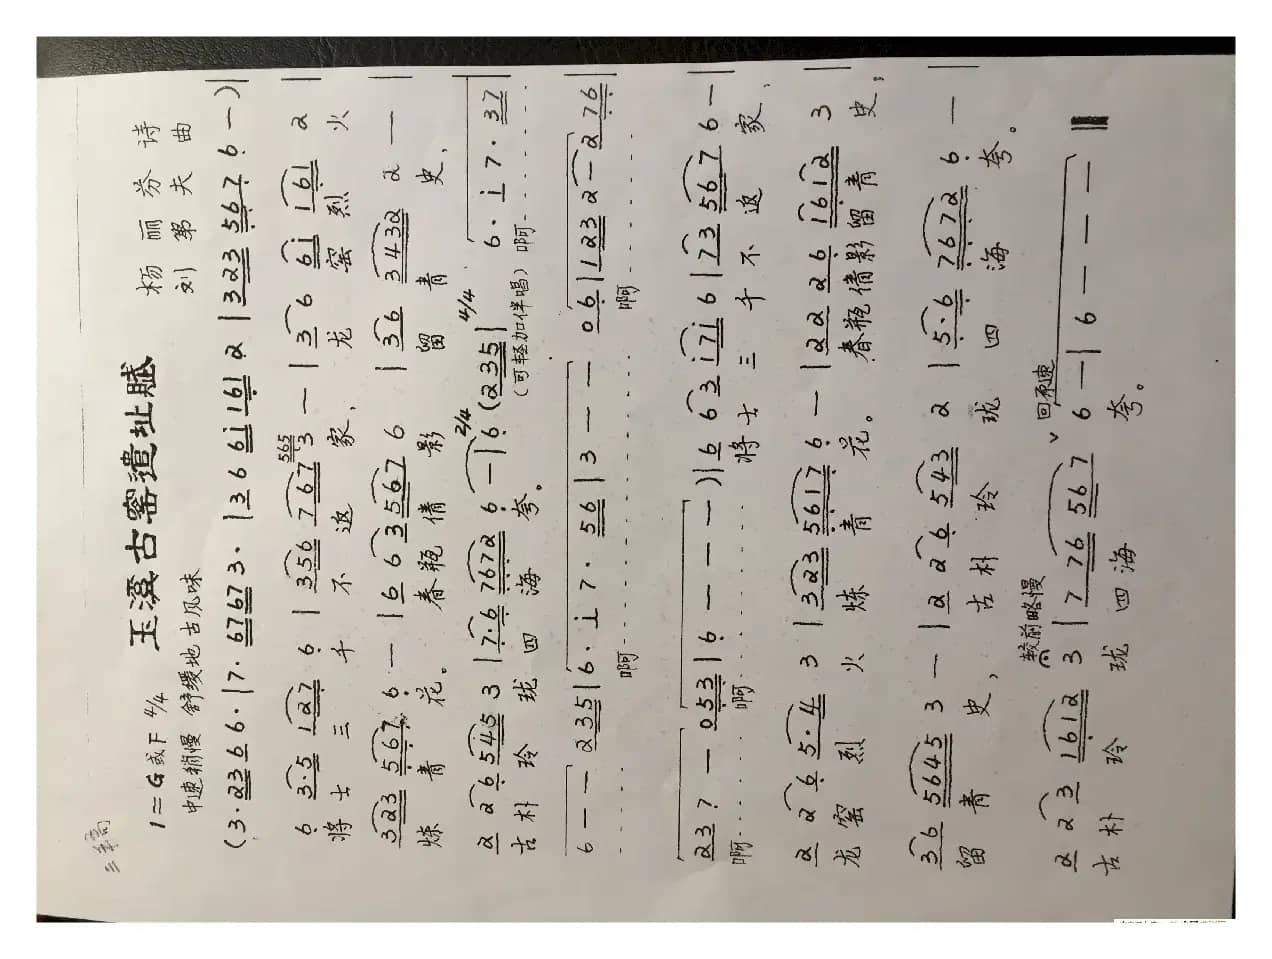 三稿
玉溪古窑遗址赋
1=G或F 4/4
杨丽芬 诗
中速稍慢 舒缓地 古风味
刘第夫 曲
(3·2366·|7·67673·|3 6 6i 161 2|323 567 6 —)|
6 3·5 127 6|356 767 565 3 —|3 6 6i 161 2|
将士三千不返家,龙窑烈火
323 567 6 —|6 6 3 567 6|3 6 3432 2 —|
炼青花。春瓶倩影留青史,
2 2 6 545 3|7·6 7672 6 —|2/4 6 (235|4/4 6·i 7·37
古朴玲珑四海夸。(可轻加伴唱) 啊
6 — — 235|6·i 7·56|3 — — 06|123 2 — 2 76|
啊 啊
237 — 053|6 — — —)|6 6 3 i7i 6|73 567 6 —|
啊 啊 将士三千不返家,
2 2 6 5·4 3|323 5617 6 —|2 2 2 6 1612 3|
龙窑烈火炼青花。春瓶倩影留青史;
3 6 5645 3 —|2 2 6 543 2|5·6 7672 6 —|
留青史,古朴玲珑四海夸。
较前略慢 回原速
2 2 3 1612 3|7 76 567 6 —|6 — — —
古朴玲珑四海夸。